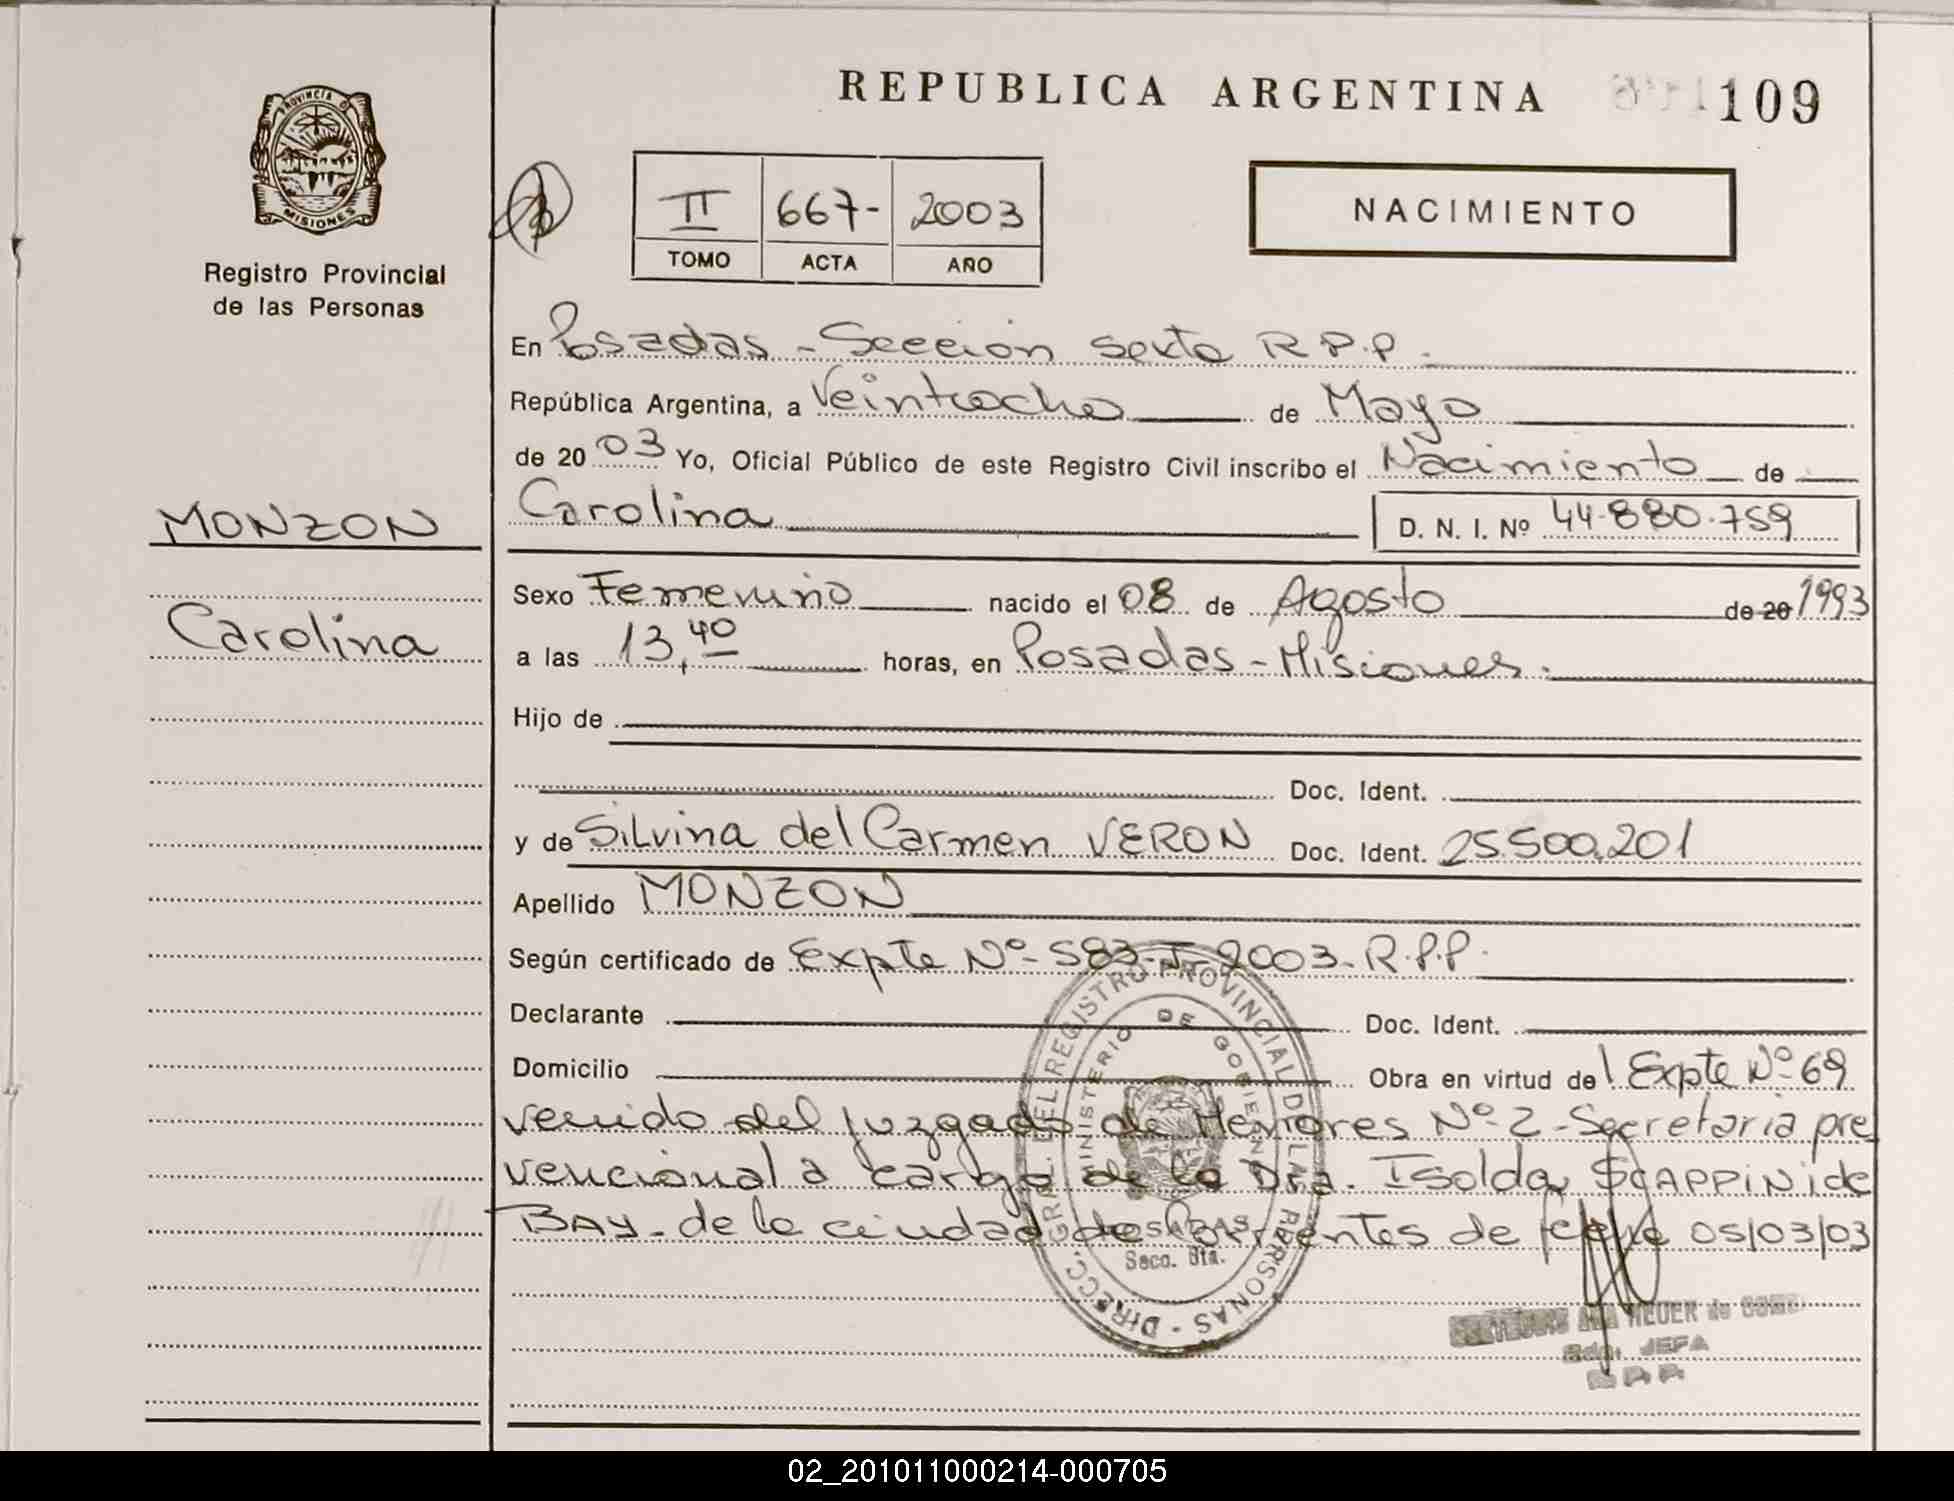 REPUBLICA ARGENTINA 109
PROVINCIA D
MISIONES
Registro Provincial
de las Personas
II 667- 2003
TOMO ACTA AÑO
NACIMIENTO
En Posadas - Sección sexta R.P.P.
República Argentina, a Veintiocho de Mayo
de 20 03 Yo, Oficial Público de este Registro Civil inscribo el Nacimiento de
Carolina D. N. I. Nº 44.880.759
MONZON
Sexo Femenino nacido el 08 de Agosto de 20 1993
Carolina
a las 13,40 horas, en Posadas - Misiones.
Hijo de
Doc. Ident.
y de Silvina del Carmen VERON Doc. Ident. 25.500.201
Apellido MONZON
Según certificado de Expte Nº 583-J-2003-R.P.P.
Declarante Doc. Ident.
Domicilio Obra en virtud del Expte Nº 69
venido del Juzgado de Menores Nº 2 - Secretaria pre
vencional a cargo de la Dra. Isolda SCAPPINI de
BAY - de la ciudad de Corrientes de fecha 05/03/03
DIRECC. GRAL. DEL REGISTRO PROVINCIAL DE LAS PERSONAS
MINISTERIO DE GOBIERNO
POSADAS
Secc. 6ta.
JEFA
R.P.P.
02_201011000214-000705